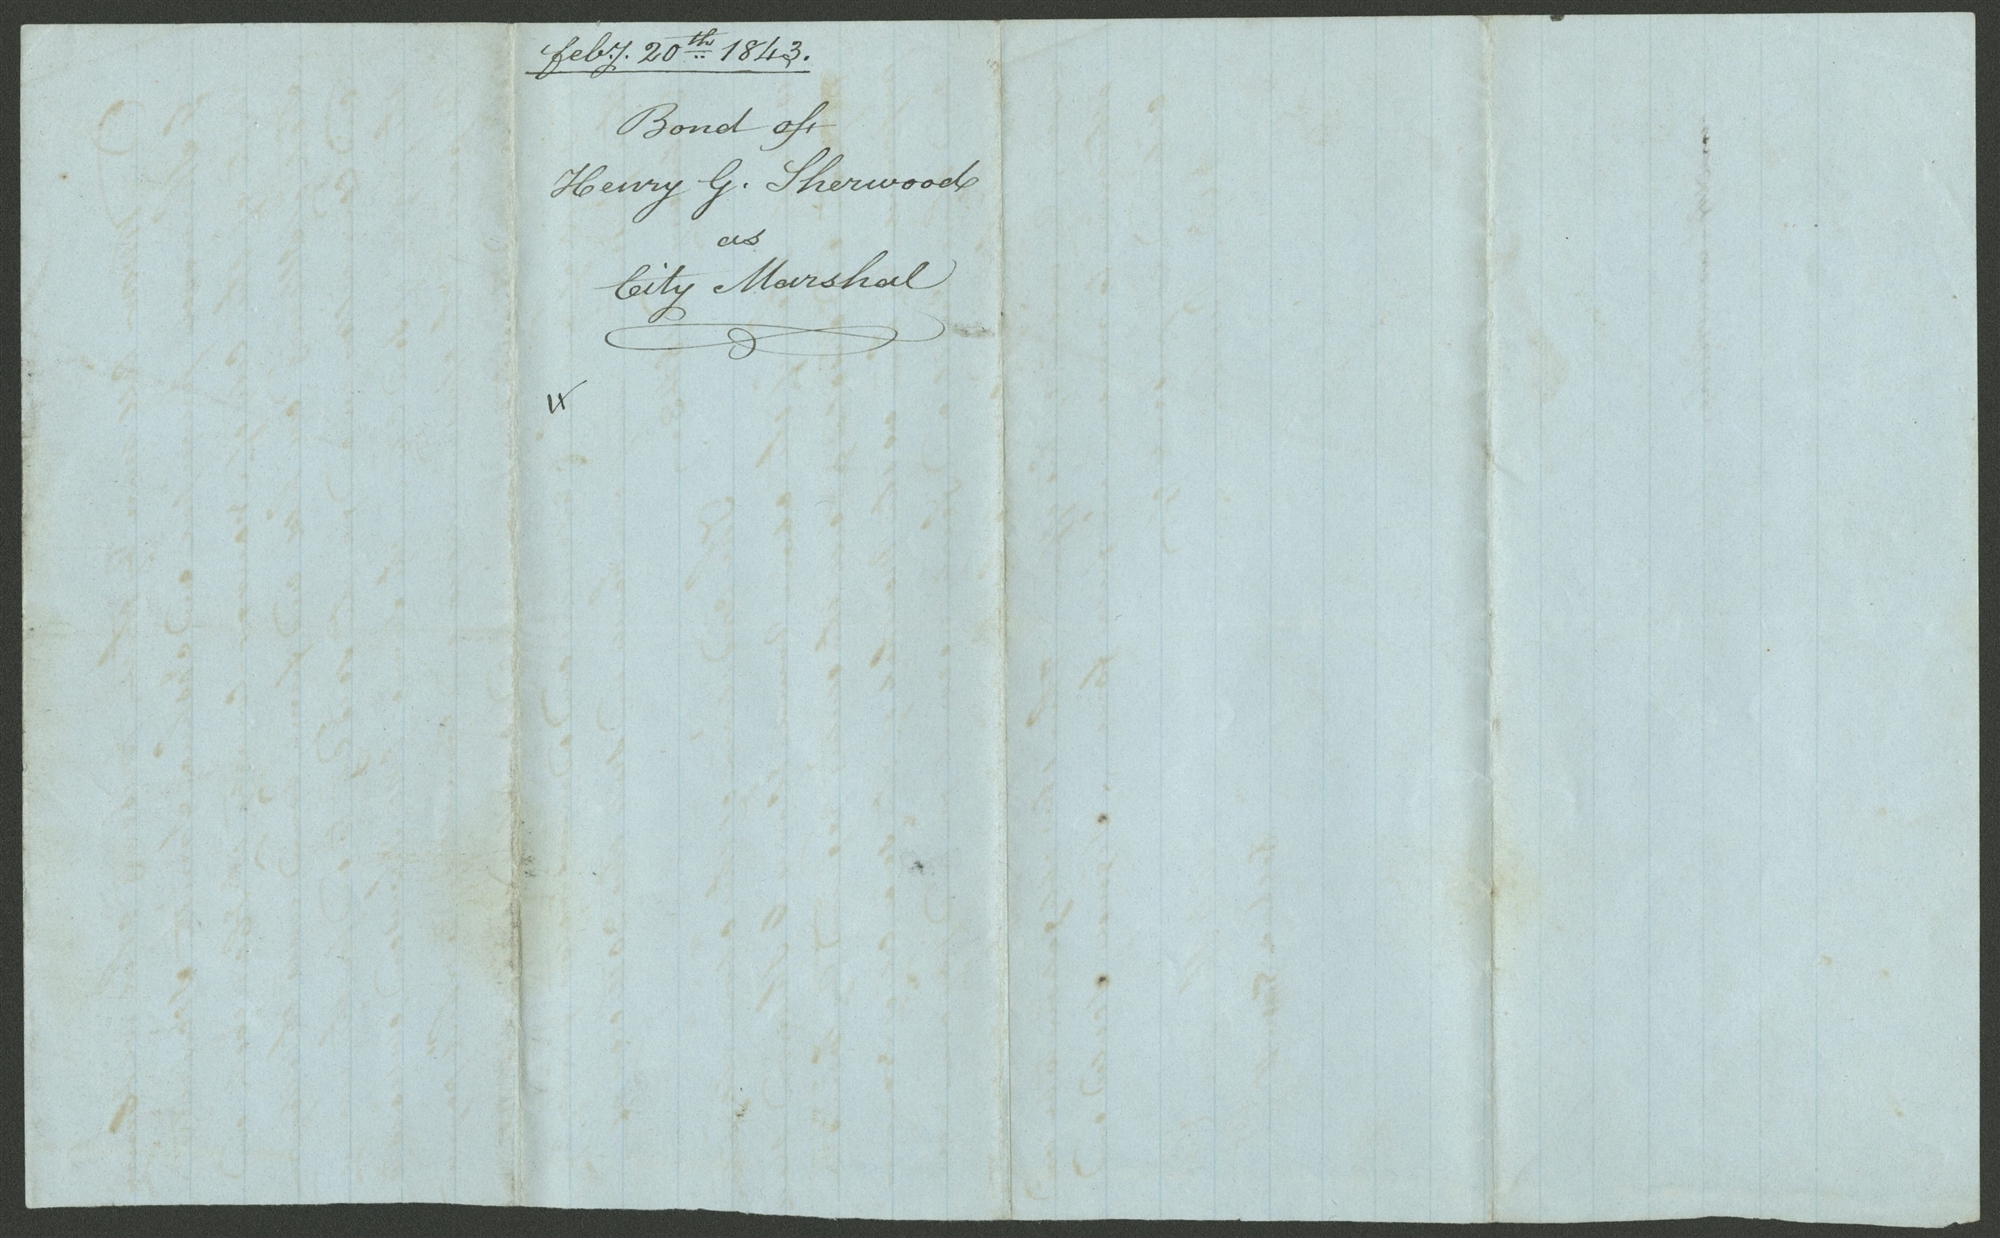 feby. 20th 1843.
Bond of
Henry G. Sherwood
as
City Marshal